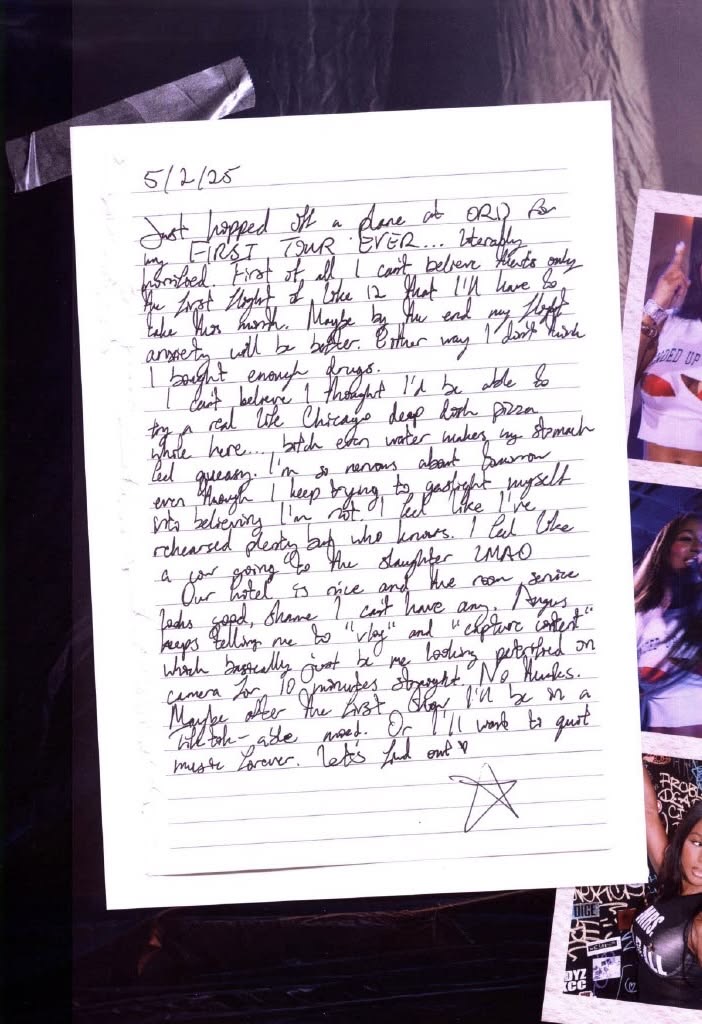 5/2/25
Just hopped off a plane at ORD for
my FIRST TOUR EVER... literally
horrified. First of all I can't believe that's only
the first flight of like 12 that I'll have to
take this month. Maybe by the end my flight
anxiety will be better. Either way I don't think
I bought enough drugs.
I can't believe I thought I'd be able to
try a real life Chicago deep dish pizza
while here... bitch even water makes my stomach
feel queasy. I'm so nervous about tomorrow
even though I keep trying to gaslight myself
into believing I'm not. I feel like I've
rehearsed plenty but who knows. I feel like
a cow going to the slaughter LMAO
Our hotel is nice and the room service
looks good, shame I can't have any. Angus
keeps telling me to "vlog" and "capture content"
which basically just be me looking petrified on
camera for 10 minutes straight. No thanks.
Maybe after the first show I'll be in a
tiktok-able mood. Or I'll want to quit
music forever. Let's find out ♥
DED UP
PROB
DICE
MRS.
ALL
OYZ
KCC